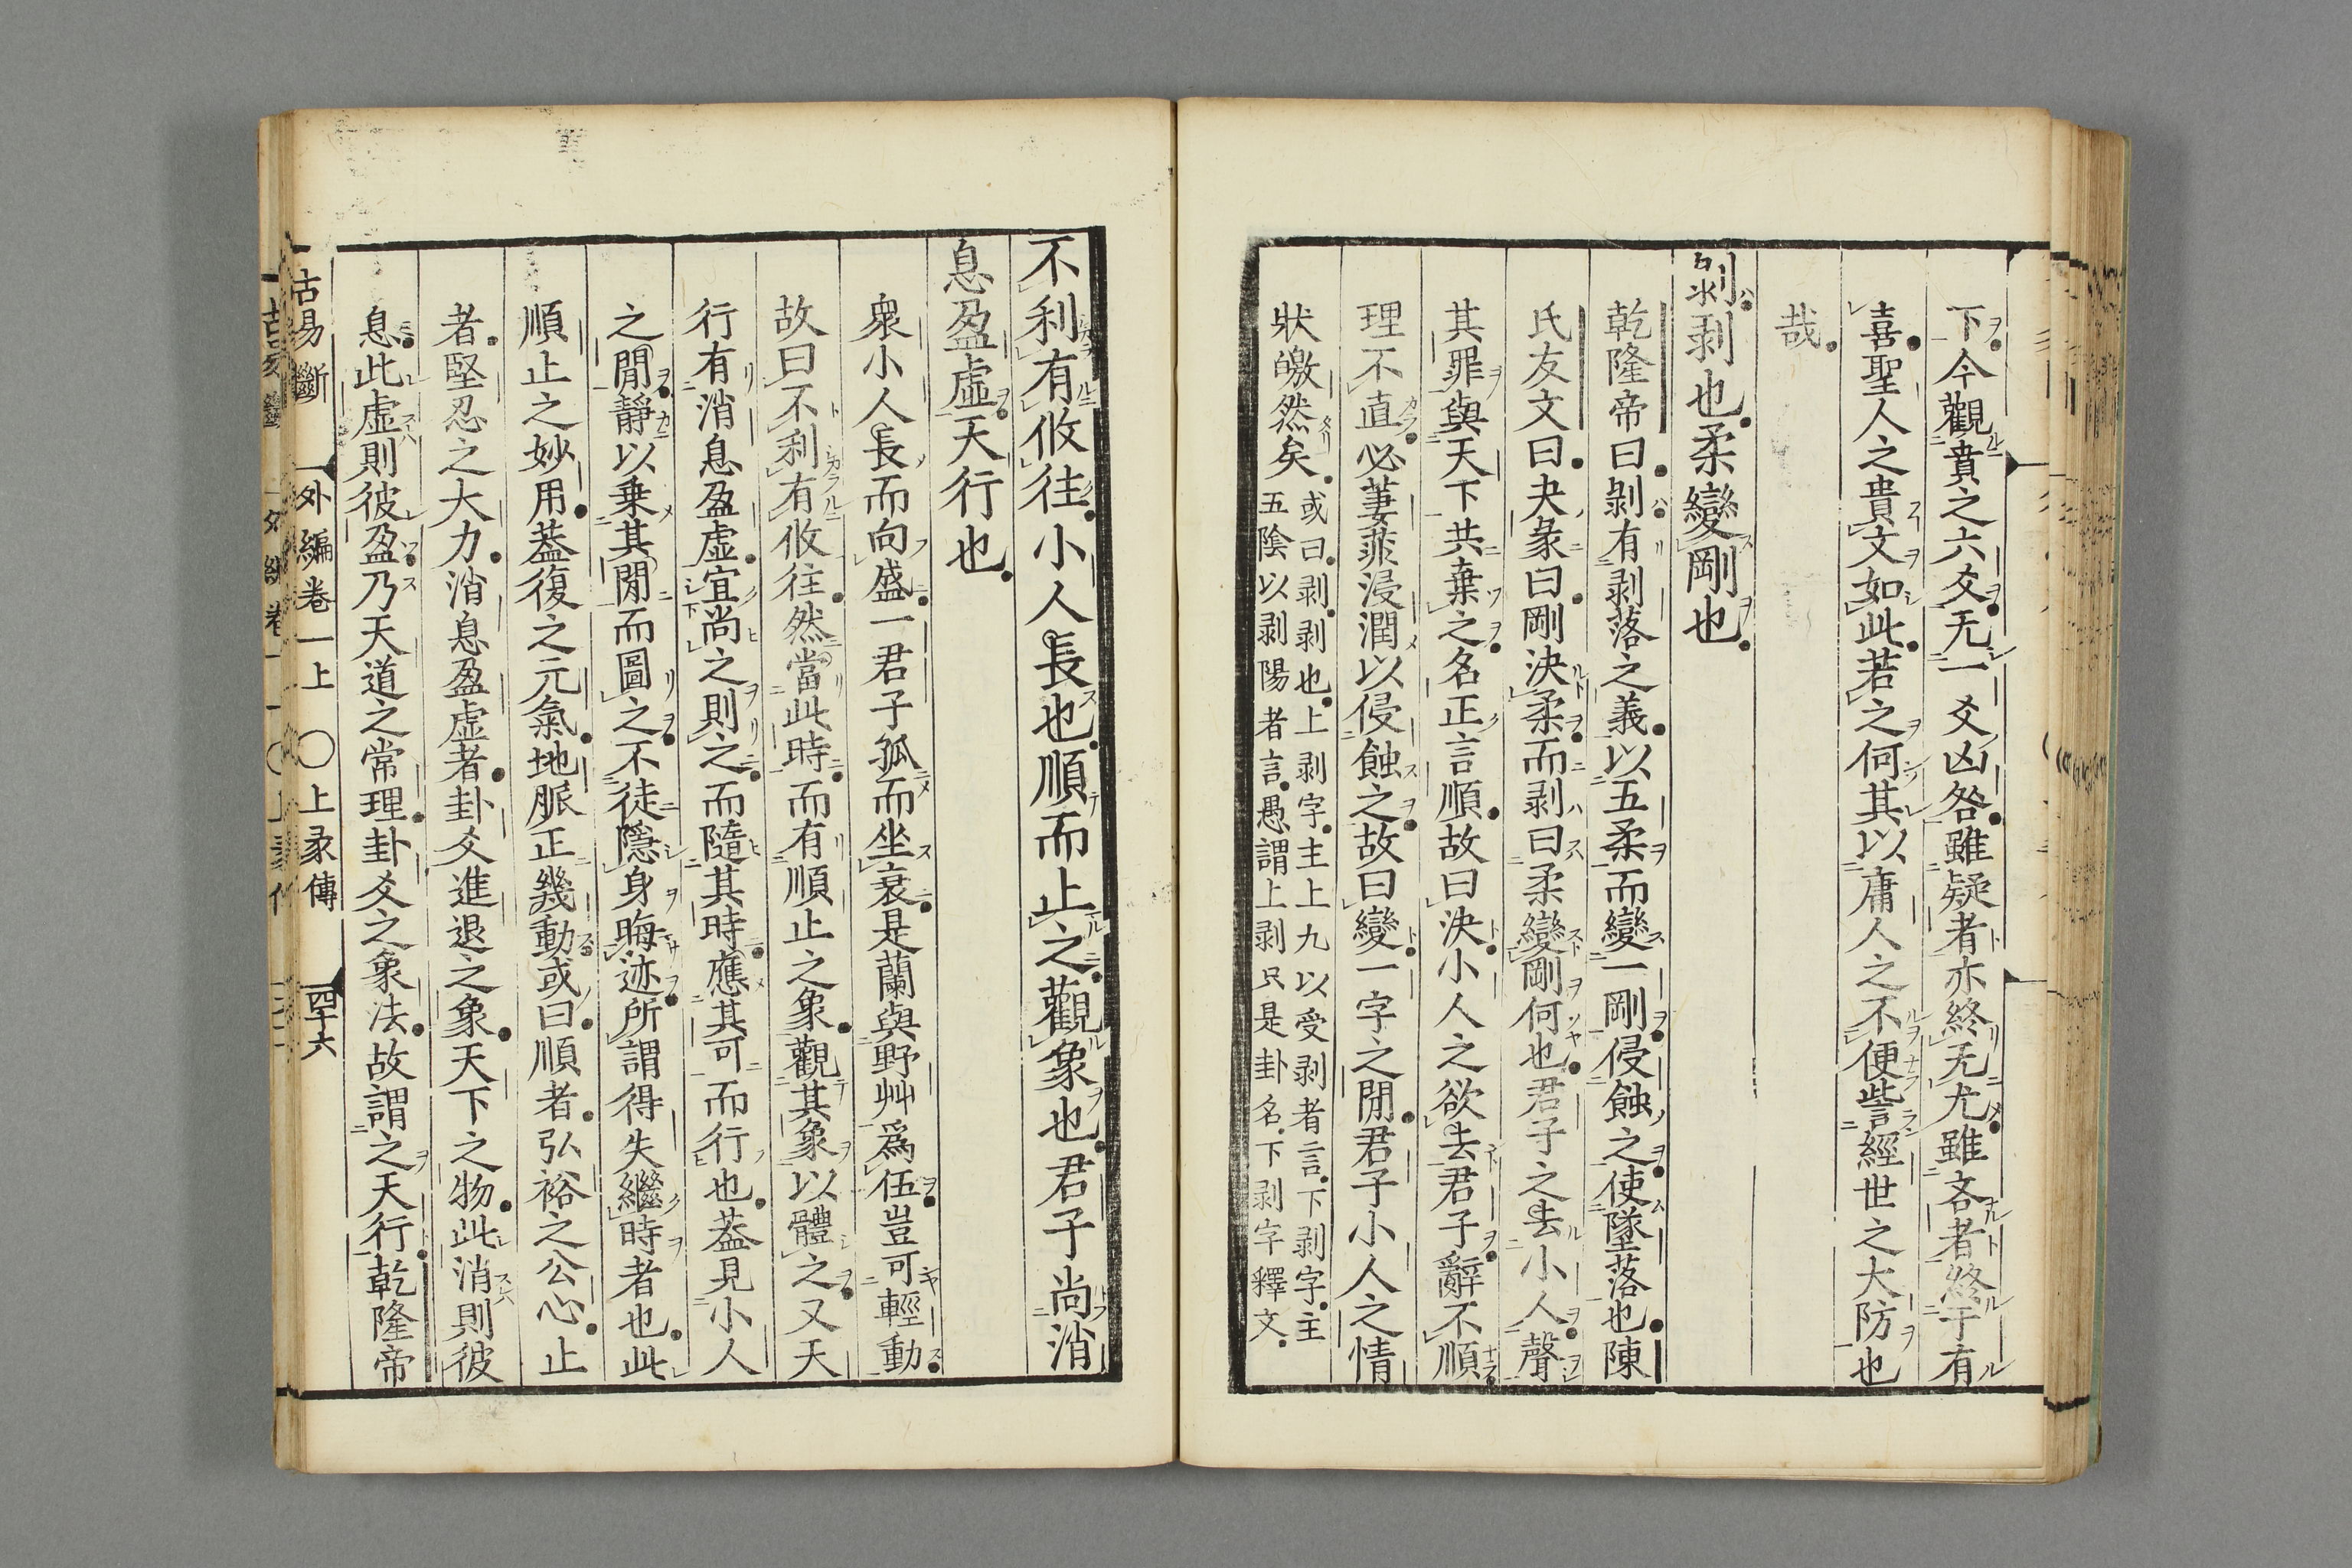 下今觀賁之六爻无一爻凶咎雖疑者亦終无尤雖吝者終于有
喜聖人之貴文如此若之何其以庸人之不便訾經世之大防也
哉
剝剥也柔變剛也
乾隆帝曰剝有剥落之義以五柔而變一剛侵蝕之使墜落也陳
氏友文曰夬彖曰剛決柔而剥曰柔變剛何也君子之去小人聲
其罪與天下共棄之名正言順故曰決小人之欲去君子辭不順
理不直必萋菲浸潤以侵蝕之故曰變一字之閒君子小人之情
狀皦然矣
或曰剥剥也上剥字主上九以受剥者言下剥字主
五陰以剥陽者言愚謂上剥只是卦名下剥字釋文
不利有攸往小人長也順而止之觀象也君子尚消
息盈虛天行也
衆小人長而向盛一君子孤而坐衰是蘭與野艸爲伍豈可輕動
故曰不利有攸往然當此時而有順止之象觀其象以體之又天
行有消息盈虛宜尚之則之而隨其時應其可而行也葢見小人
之閒靜以乗其閒而圖之不徒隱身晦迹所謂得失繼時者也此
順止之妙用葢復之元氣地脈正幾動或曰順者弘裕之公心止
者堅忍之大力消息盈虛者卦爻進退之象天下之物此消則彼
息此虛則彼盈乃天道之常理卦爻之象法故謂之天行乾隆帝
古易斷 外編卷一上 〇上彖傳 四十六